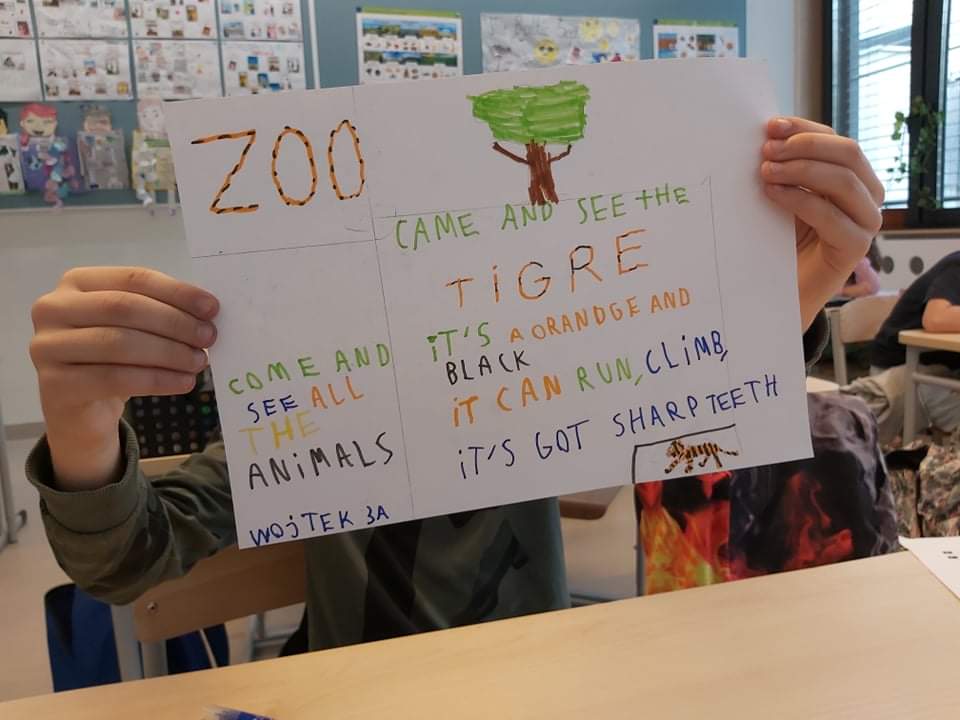 ZOO
COME AND
SEE ALL
THE
ANIMALS
WOJTEK 3A
CAME AND SEE THE
TIGRE
IT'S A ORANDGE AND
BLACK
IT CAN RUN, CLIMB,
IT'S GOT SHARP TEETH